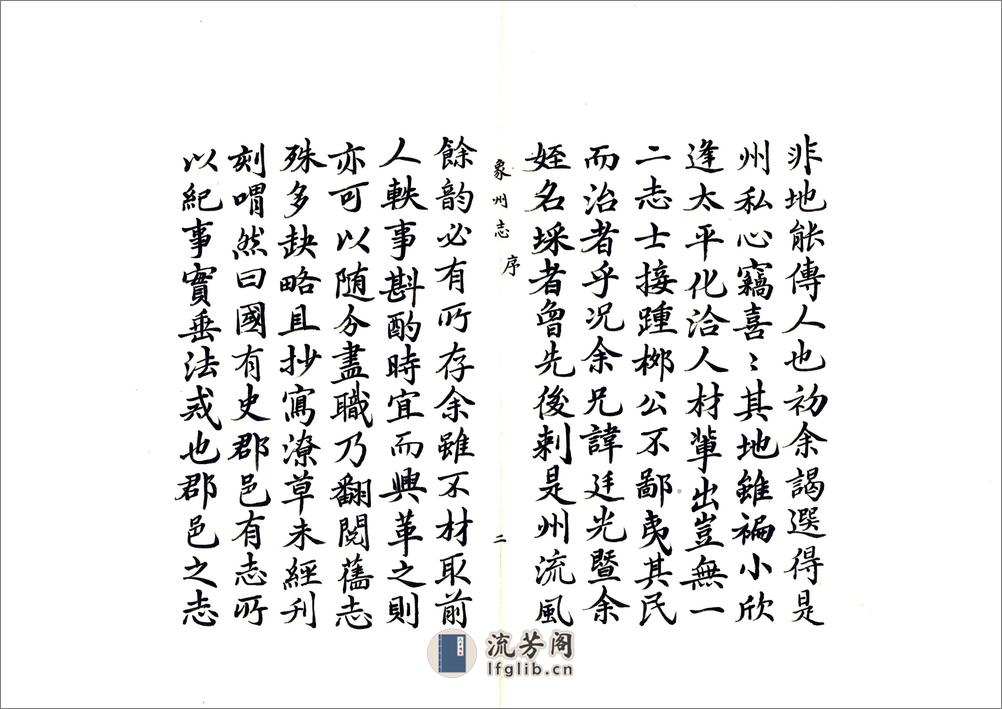 非地能傳人也初余謁選得是
州私心竊喜〻其地雖褊小欣
逢太平化洽人材輩出豈無一
二志士接踵栁公不鄙夷其民
而治者乎况余兄諱廷光暨余
姪名埰者曾先後剌是州流風
象州志
序
二
餘韵必有所存余雖不材取前
人軼事斟酌時宜而興革之則
亦可以随分盡職乃翻閱舊志
殊多缺略且抄寫潦草未經刋
刻喟然曰國有史郡邑有志所
以紀事實垂法戒也郡邑之志
流芳阁
lfglib.cn